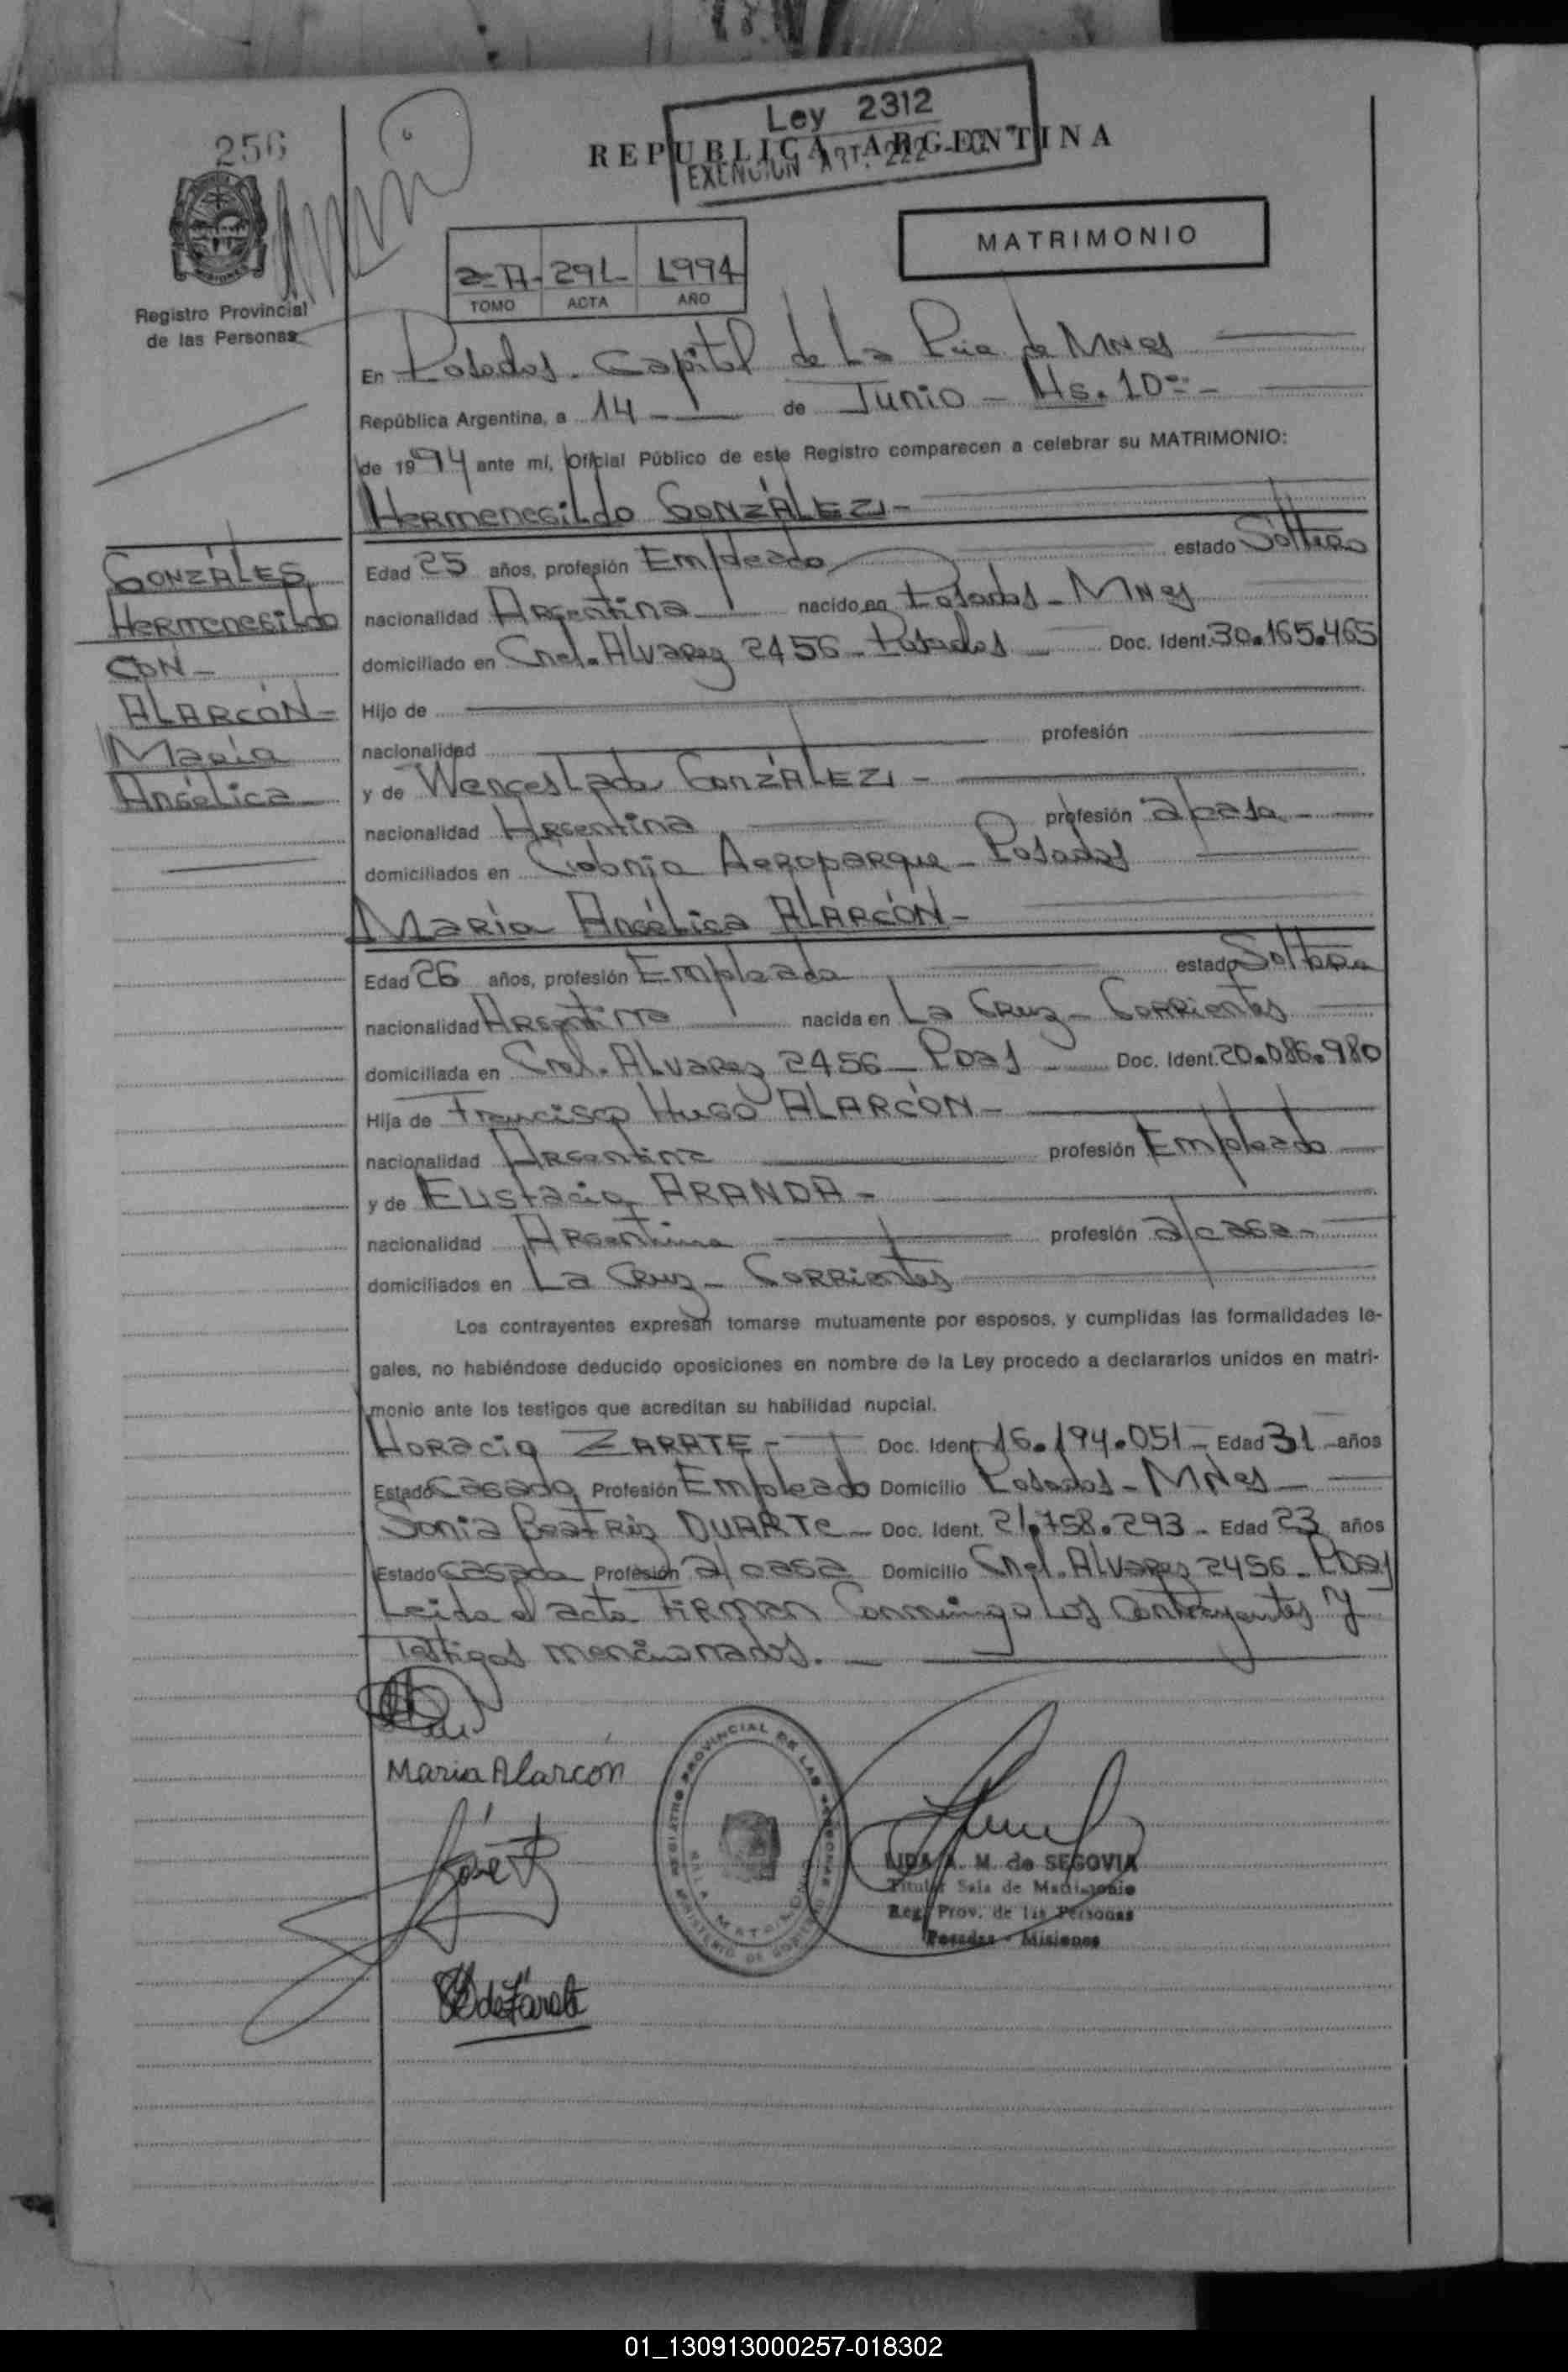 256
Ley 2312
REPUBLICA ARGENTINA
EXENCION ART. 222
MATRIMONIO
2-A- 291 1994
TOMO ACTA AÑO
Registro Provincial
de las Personas
En Posadas. Capital de La Pcia de Mnes
República Argentina, a 14 - de Junio - Hs. 10 -
de 1994 ante mí, Oficial Público de este Registro comparecen a celebrar su MATRIMONIO:
Hermenegildo GONZÁLEZ -
GONZÁLES
Hermenegildo
CON -
ALARCÓN -
María
Angélica
Edad 25 años, profesión Empleado estado Soltero
nacionalidad Argentina nacido en Posadas - Mnes
domiciliado en Cnel. Alvarez 2456 - Posadas - Doc. Ident. 30.165.465
Hijo de
nacionalidad profesión
y de Wenceslada GONZÁLEZ -
nacionalidad Argentina profesión a/casa -
domiciliados en Colonia Aeroparque - Posadas
María Angélica ALARCÓN -
Edad 26 años, profesión Empleada estado Soltera
nacionalidad Argentina nacida en La Cruz - Corrientes
domiciliada en Cnel. Alvarez 2456 - Pdas - Doc. Ident. 20.086.980
Hija de Francisco Hugo ALARCÓN -
nacionalidad Argentina profesión Empleado
y de Eustacia ARANDA -
nacionalidad Argentina profesión a/casa -
domiciliados en La Cruz - Corrientes
Los contrayentes expresan tomarse mutuamente por esposos, y cumplidas las formalidades le-
gales, no habiéndose deducido oposiciones en nombre de la Ley procedo a declararlos unidos en matri-
monio ante los testigos que acreditan su habilidad nupcial.
Horacio ZARATE - Doc. Ident. 16.194.051 - Edad 31 años
Estado Casado Profesión Empleado Domicilio Posadas - Mnes -
Sonia Beatriz DUARTE - Doc. Ident. 21.758.293 - Edad 23 años
Estado Casada Profesión a/casa Domicilio Cnel. Alvarez 2456 - Pdas
Leida el acta Firman Conmigo Los Contrayentes y
Testigos mencionados. -
Maria Alarcón
REGISTRO PROVINCIAL DE LAS PERSONAS
SALA MATRIMONIO
MINISTERIO DE GOBIERNO
LIDA A. M. de SEGOVIA
Titular Sala de Matrimonio
Reg. Prov. de las Personas
Posadas - Misiones
de Zárate
01_130913000257-018302